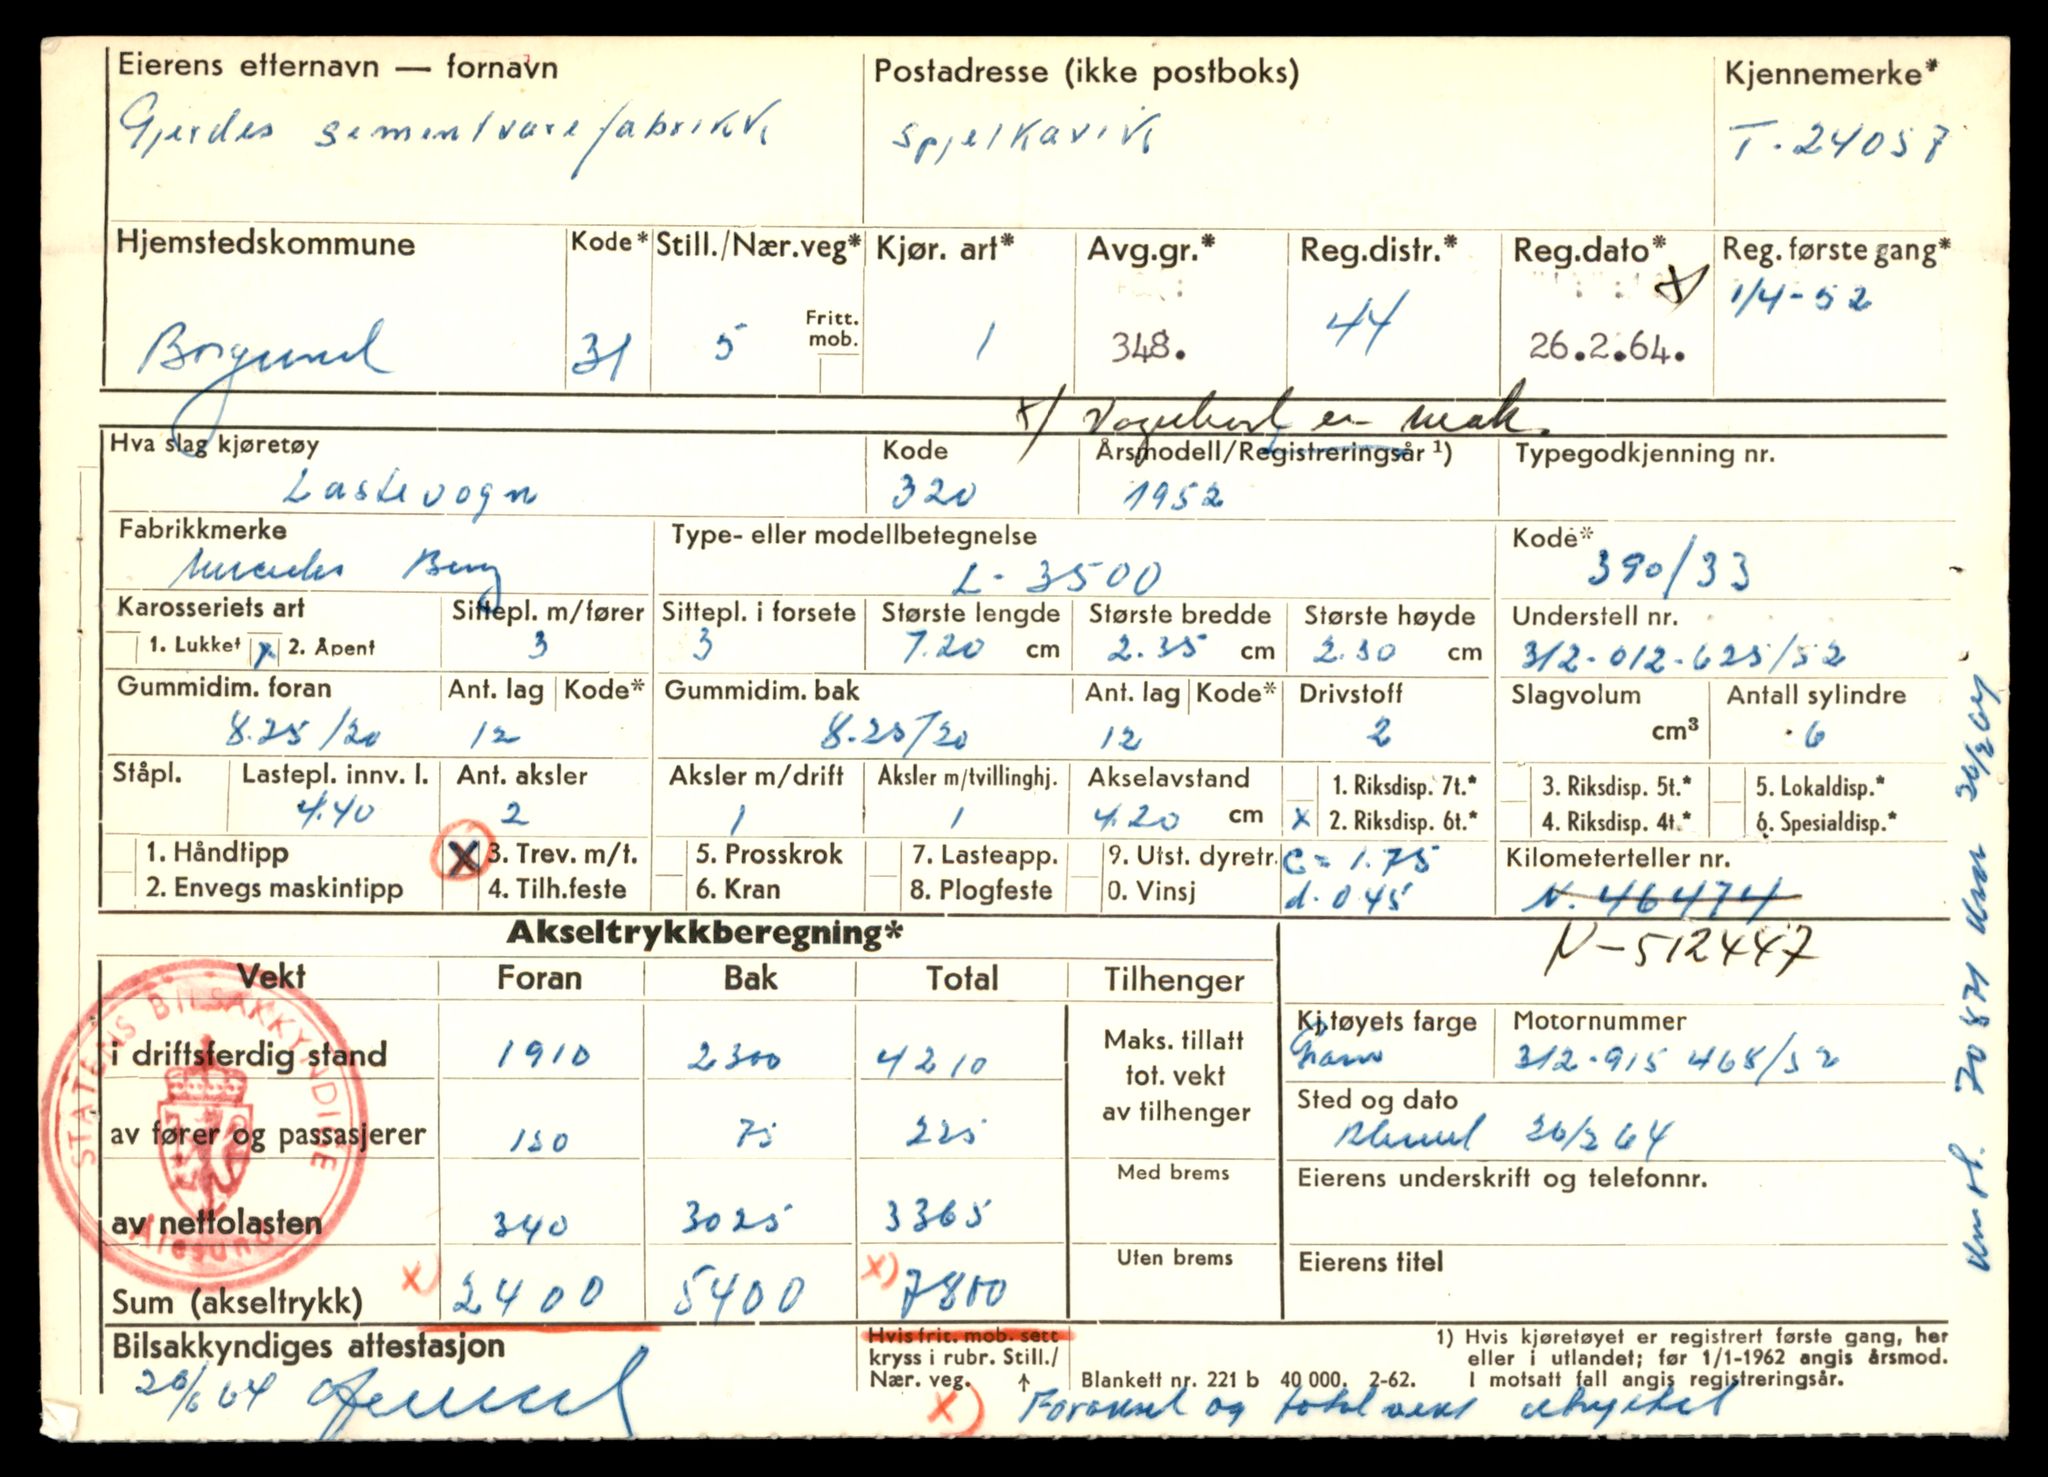 Eierens etternavn — fornavn Postadresse (ikke postboks) Kjennemerke*
Gjerdes sementvarefabrikk Spjelkavik T-24057
Hjemstedskommune Kode* Still./Nær.veg* Kjør. art* Avg.gr.* Reg.distr.* Reg.dato* Reg. første gang*
x) 1/4-52
Borgund 31 5 Fritt. mob. 1 348. 44 26.2.64.
x/ Vognkort er
Hva slag kjøretøy Kode Årsmodell/Registreringsår 1) Typegodkjenning nr.
Lastevogn 320 1952
Fabrikkmerke Type- eller modellbetegnelse Kode*
Mercedes Benz L-3500 390/33
Karosseriets art Sittepl. m/fører Sittepl. i forsete Største lengde Største bredde Største høyde Understell nr.
1. Lukket x 2. Åpent 3 3 7.20 cm 2.35 cm 2.30 cm 312-012-625/52
Gummidim. foran Ant. lag Kode* Gummidim. bak Ant. lag Kode* Drivstoff Slagvolum Antall sylindre
8.25/20 12 8.25/20 12 2 cm³ 6
Ståpl. Lastepl. innv. l. Ant. aksler Aksler m/drift Aksler m/tvillinghj. Akselavstand 1. Riksdisp. 7t.* 3. Riksdisp. 5t.* 5. Lokaldisp.*
4.40 2 1 1 4.20 cm x 2. Riksdisp. 6t.* 4. Riksdisp. 4t.* 6. Spesialdisp.*
1. Håndtipp X 3. Trev. m/t. 5. Prosskrok 7. Lasteapp. 9. Utst. dyretr. C = 1.75 Kilometerteller nr.
2. Envegs maskintipp 4. Tilh.feste 6. Kran 8. Plogfeste 0. Vinsj d. 0.45 N. 46474
Akseltrykkberegning* N-512447
Vekt Foran Bak Total Tilhenger
i driftsferdig stand 1910 2300 4210 Maks. tillatt tot. vekt av tilhenger Kj.tøyets farge Motornummer
312-915 465/52
Sted og dato
av fører og passasjerer 150 75 225 26/2 64
Med brems Eierens underskrift og telefonnr.
av nettolasten 340 3025 3365
Uten brems Eierens titel
Sum (akseltrykk) x) 2400 5400 x) 7800
STATENS BILSAKKYNDIGE
Ålesund
Bilsakkyndiges attestasjon Hvis frit. mob. sett 1) Hvis kjøretøyet er registrert første gang, her
kryss i rubr. Still./ eller i utlandet; før 1/1-1962 angis årsmod.
Nær. veg. ↑ Blankett nr. 221 b 40 000. 2-62. I motsatt fall angis registreringsår.
x) Foraksel og total vekt
70871 26/2 64